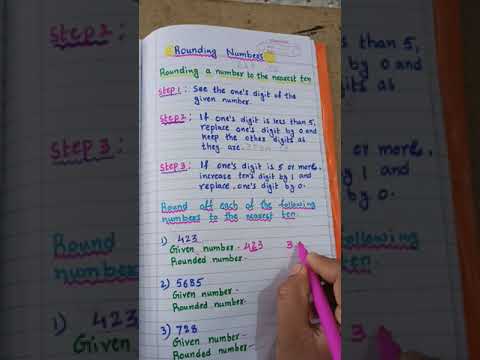 Rounding Numbers
Rounding a number to the nearest ten
Step 1: See the one's digit of the
given number.
Step 2: If one's digit is less than 5,
replace one's digit by 0 and
keep the other digits as
they are.
Step 3: If one's digit is 5 or more,
increase ten's digit by 1 and
replace one's digit by 0.
Round off each of the following
numbers to the nearest ten.
1) 423
Given number - 423 3
Rounded number -
2) 5685
Given number -
Rounded number -
3) 728
Given number -
Rounded number -
Step 2:
Step 3:
Round
numbe
1) 42
Giv
ess than 5,
by 0 and
digits as
or more,
by 1 and
by 0.
following
ten.
3